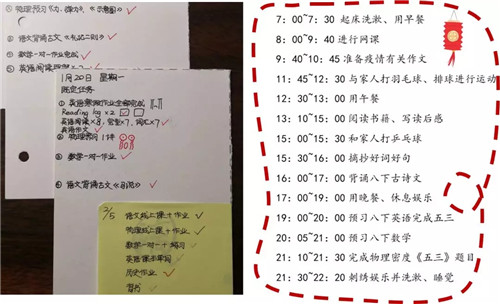 ② 语文背诵古文
③ 数学一对一作业完成
④ 英语阅读
1月20日 星期一
既定任务
① 英语寒假作业全部完成
Reading log ×2
英语阅读×8, 完型×7, 词汇×7
英语作文
② 物理预习 1讲
③ 数学一对一作业
④ 语文背诵古文
2/5
语文线上课+作业
物理线上课+作业
数学一对一+练习
英语课本单词
历史作业
背书
7：00~7：30 起床洗漱、用早餐
8：00~9：40 进行网课
9：40~10：45 准备疫情有关作文
11：45~12：30 与家人打羽毛球、排球进行运动
12：30~13：00 用午餐
13：10~15：00 阅读书籍、写读后感
15：00~15：30 和家人打乒乓球
15：30~16：00 摘抄好词好句
16：00~17：00 背诵八下古诗文
17：00~19：00 用晚餐、休息娱乐
19：00~20：00 预习八下英语完成五三
20：05~21：00 预习八下数学
21：10~21：30 完成物理密度《五三》题目
21：30~22：20 刺绣娱乐并洗漱、睡觉